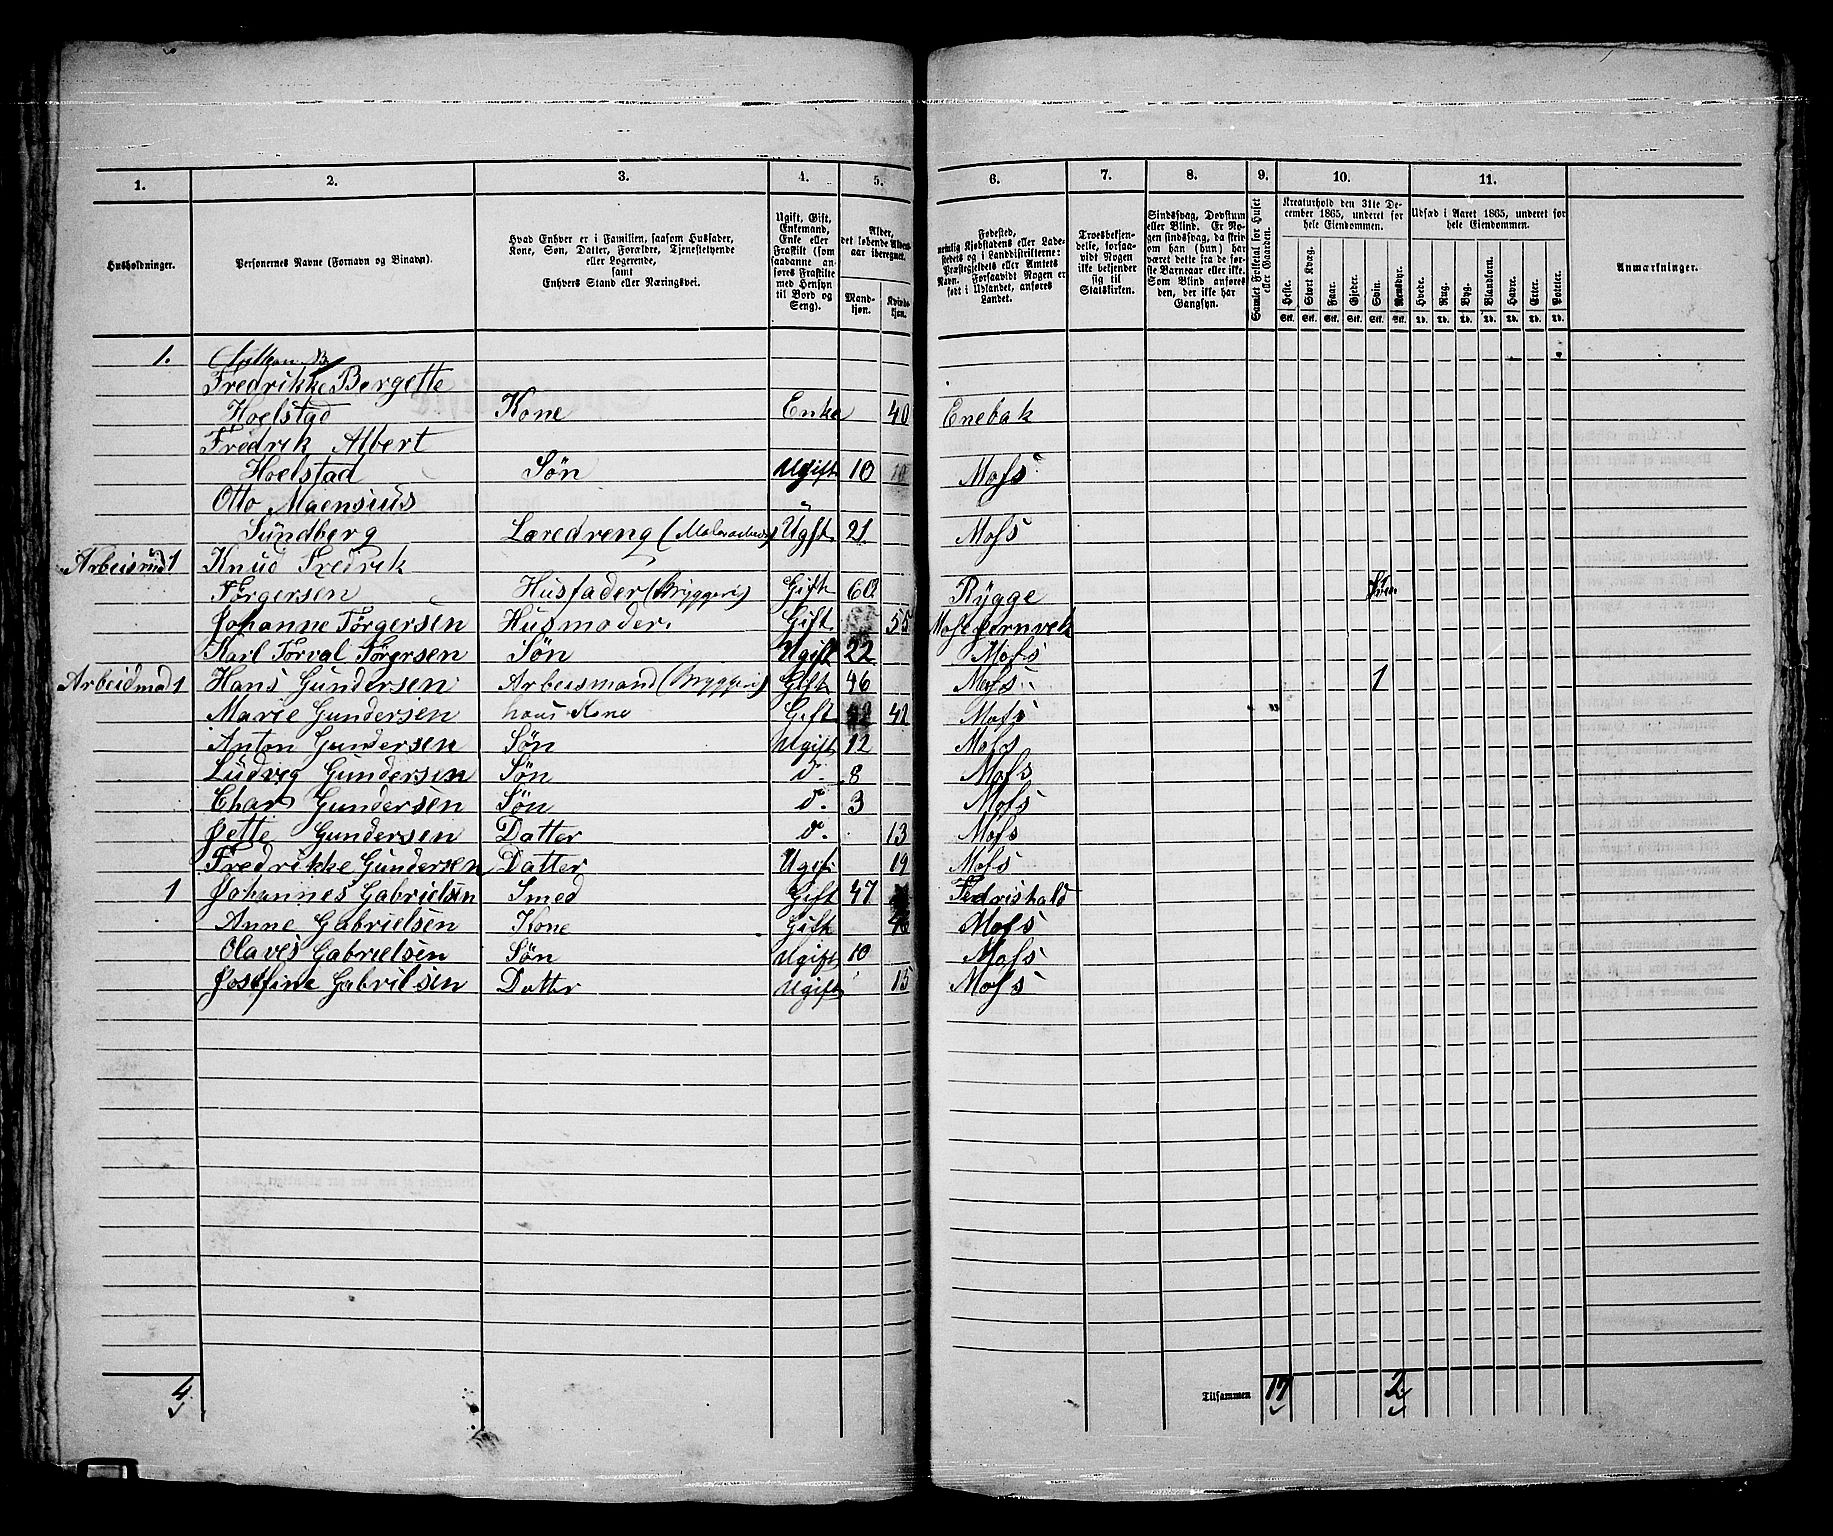 1. 2. 3. 4. 5. 6. 7. 8. 9. 10. 11.
Husholdninger.
Personernes Navne (Fornavn og Binavn).
Hvad Enhver er i Familien, saasom Husfader,
Kone, Søn, Datter, Forældre, Tjenestetyende
eller Logerende,
samt
Enhvers Stand eller Næringsvei.
Ugift, Gift,
Enkemand,
Enke eller
Fraskilt (som
saadanne an-
føres Fraskilte
med Hensyn
til Bord og
Seng).
Alder,
det løbende Alders-
aar iberegnet.
Mand-
kjøn.
Kvind-
kjøn.
Fødested,
nemlig Kjøbstadens eller Lade-
stedets og i Landdistrikterne:
Præstegjeldets eller Amtets
Navn. Forsaavidt Nogen er
født i Udlandet, anføres
Landet.
Troesbekjen-
delse, forsaa-
vidt Nogen
ikke bekjender
sig til
Statskirken.
Sindssvag, Døvstum
eller Blind. Er No-
gen sindssvag, da skriv
om han (hun) har
været dette fra de før-
ste Barneaar eller ikke.
Som Blind anføres
den, der ikke har
Gangsyn.
Samlet Folketal for Huset
eller Gaarden.
Kreaturhold den 31te De-
cember 1865, underet for
hele Eiendommen.
Heste. Stort Kvæg. Faar. Gjeder. Svin. Rensdyr.
Stk. Stk. Stk. Stk. Stk. Stk.
Udsæd i Aaret 1865, underet for
hele Eiendommen.
Hvede. Rug. Byg. Blandkorn. Havre. Erter. Poteter.
Td. Td. Td. Td. Td. Td. Td.
Anmærkninger.
1.
Fredrikke Bergette
Hoelstad Kone Enke 40 Enebak
Fredrik Albert
Hoelstad Søn Ugift 10 Mofs
Otto Maensius
Sündberg Loredreng ( Ugft 21 Mofs
1 Knud Fredrik
Törgersen Husfader (Bryggeri) Gift 60 Rÿgge
Johanne Törgersen Husmoder. Gift 55
Karl Torval Törgersen Søn Ugift 22 Mofs
Arbeidmad 1 Hans Gundersen Arbeismand (Bryggeri) Gift 46 Mofs 1
Marie Gundersen hans Kone Gift 42 Mofs
Anton Gundersen Søn Ugift 12 Mofs
Ludvig Gundersen Søn d. 8 Mofs
Chars Gundersen Søn d. 3 Mofs
Jette Gundersen Datter d. 13 Mofs
Fredrikke Gundersen Datter Ugif 19 Mofs
1 Johannes Gabrielsen Smed Gift 47 Fedrishald
Anne Gabrielsen Kone Gift Mofs
Olaves Gabrielsen Søn Ugift 10 Mofs
Josefine Gabrilsen Datter Ugift 15 Mofs
4 Tilsammen 17 2